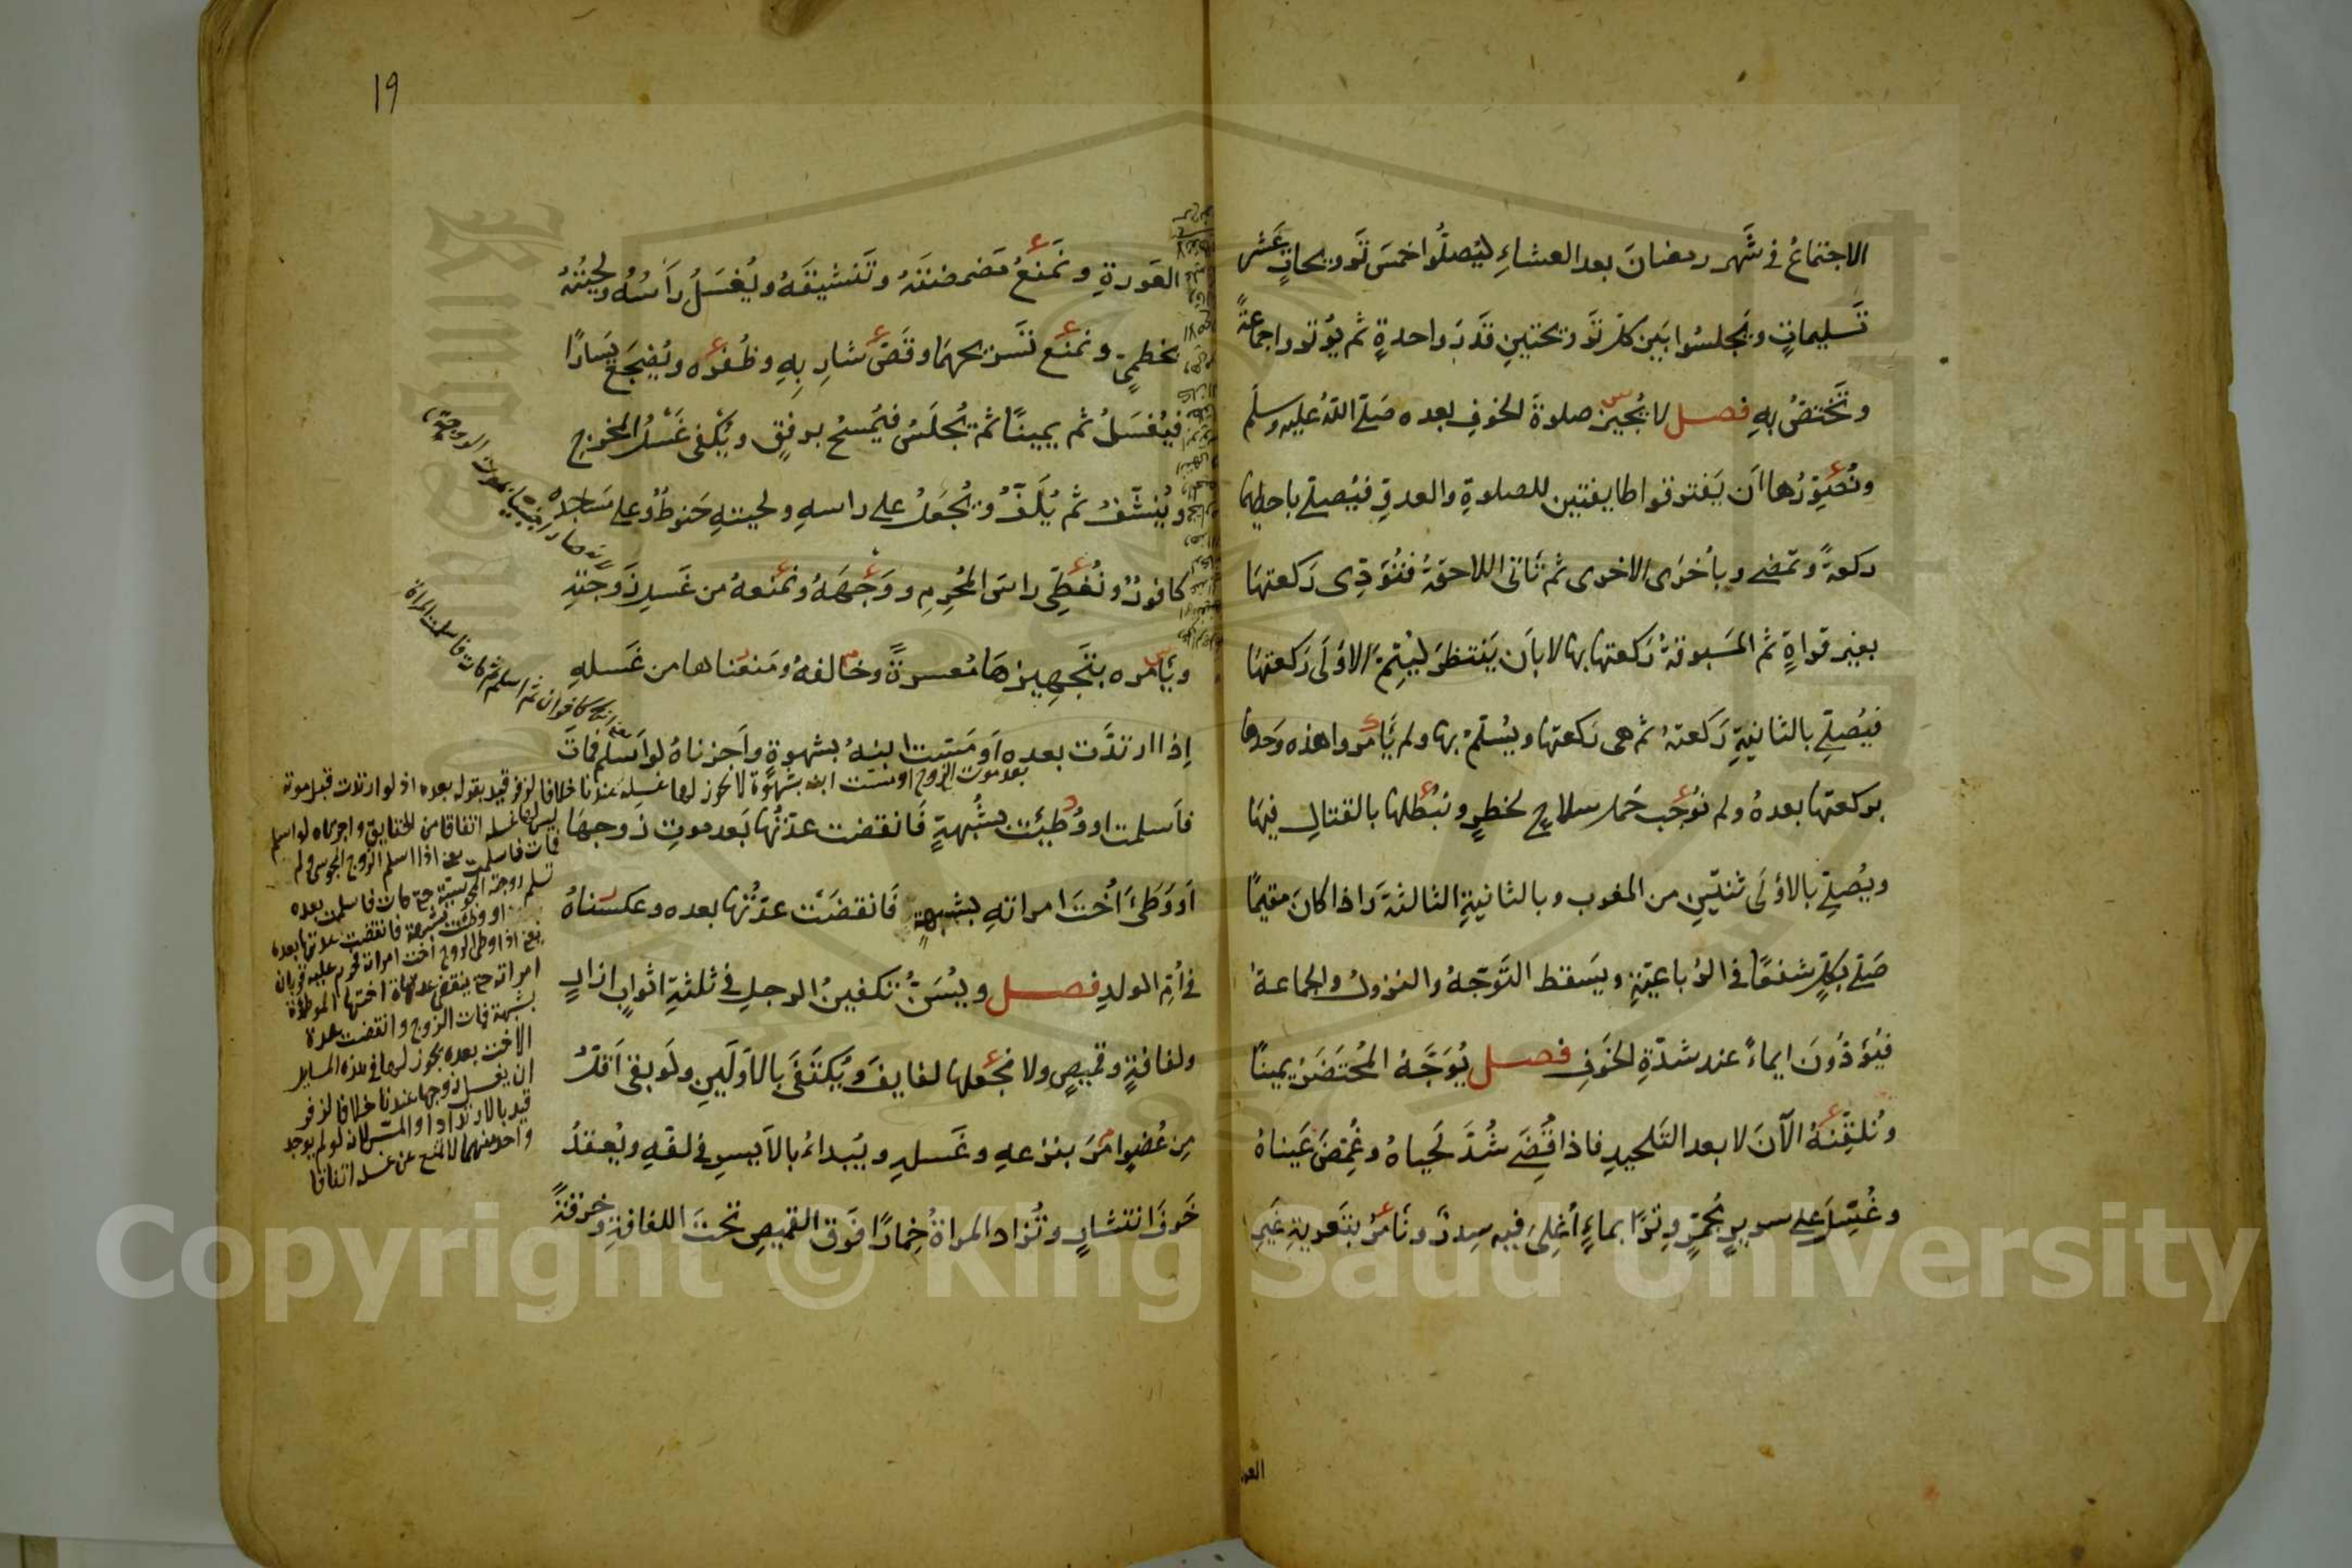 الاجتماعُ في شَهر رمضانَ بعد العشاءِ ليُصلُّوا خمسَ تَرويحاتٍ عَشر
تَسليماتٍ ويَجلسُوا بَين كلّ تَرويحتينِ قَدرَ واحدةٍ ثم يُوتروا جماعةً
وتَختصُّ بهِ فصل لا يُجيز صلوةَ الخوفِ بعده صَلّى اللّهُ عليه وسلّم
ونُصَوّرُها اَن يَفترقوا طايفتين للصلوةِ والعدوِّ فيُصلّي باحديهما
ركعةً وتمضي وباُخرى الاخرى ثم تَاتى اللاحقةُ فتُؤدّى رَكعتهَا
بغير قراةٍ ثم المَسبوقةُ رَكعتها بها لا باَن يَنتظرَ ليُتِمَّ الاوُلَى رَكعتهَا
فيُصلّي بالثانيةِ رَكعتهُ ثم هي رَكعتها ويُسلّمُ بها ولم يَامُروا هذه وَحدها
بركعتها بعدهُ ولم نُوجب حَمل سلاحٍ لخطرٍ ونُبطلها بالقتالِ فيهَا
ويُصلّي بالاوُلَى ثنتَينِ من المغرب وبالثانيةِ الثالثةَ واذا كانَ مقيمًا
صَلّى بكلٍّ شفعًا في الرُباعيّةِ ويَسقط التَّوجّهُ والنزولُ والجماعةُ
فيُؤدُّونَ ايماءً عند شدّةِ الخَوفِ فصل يُوَجَّهُ المُحتَضَرُ يمينًا
ونُلقِّنهُ الآنَ لا بعد التَلحيدِ فاذا قُضَى شُدَّ لَحياهُ وغُمِّضَ عَيناهُ
وغُسِّلَ على سريرٍ مُجمَّرٍ وِترًا بماءٍ اُغلِىَ فيه سِدرٌ ونَامرُ بتَعريةِ غيرِ
العو
١٩
العَورةِ ونَمنَعُ مَضمضَتَهُ وتَنشيقَهُ ويُغسَلُ رَأسُهُ ولحيتُهُ
بخطميٍّ ونمنَع تَسريحهمَا وقَصَّ شارِبهِ وظُفرَه ويُضجَع يَسارًا
فيُغسَلُ ثم يمينًا ثم يُجلَسُ فيُمسحُ برفقٍ ويُكفى غَسْلُ المخرج
ويُنشَّفُ ثم يُلَفُّ ويُجعَلُ على راسهِ ولحيتهِ حَنوطٌ وعلى مَساجده
كافورٌ ونُغطِّى راسَ المُحرِمِ ووَجهَهُ ونمنَعهُ من غَسلِ زَوجتهِ
ويَامُره بتَجهيزهَا مُعسرةً وخالفهُ ومَنعناها من غَسلهِ
اِذا ارتدَّت بعده اَو مَسّت ابنهُ بشهوةٍ واَجزناهُ لو اَسلم فمَاتَ
فاَسلمت او وُطِئَت بشُبهةٍ فَانقضت عدّتُها بَعد موتِ زَوجهَا
اَو وَطِئَ اُختَ امراتهِ بشبهةٍ فَانقضَت عدّتُها بعده وعكسناهُ
في اُمِّ الولدِ فصل ويُسَنُّ تكفينُ الرجلِ في ثلثةِ اثوابٍ ازارٍ
ولفافةٍ وقميصٍ ولا نجعلها لفايفَ ويُكتَفَى بالاَوّلَينِ ولَو بقى اَقلُّ
مِن عُضوٍ امَرَ بنزعهِ وغَسلهِ ويُبدائُ بالاَيسرِ في لفّهِ ويُعقدُ
خَوفَ انتشارٍ وتُزاد المراةُ خِمارًا فَوق القميصِ تحتَ اللفافةِ وخرقةً
بعد موت الزوج او مست ابنه بشهوة لا يجوز لها غسله عندنا خلافا لزفر قيد بقوله بعده اذ لو ارتدت قبل موته
ليس لها غسله اتفاقا من الحقايق واجزناه لو اسلم
فمات فاسلمت يعني اذا اسلم الزوج المجوسى ولم
تسلم زوجته المجوسية حتى مات فاسلمت بعده
او وطئت بشبهة فانقضت عدتها بعده
يعني اذا وطى الزوج اخت امراته تحرم عليه قربان
امراته حتى ينقضى عدة اختها الموطؤة
بشبهة فمات الزوج وانقضت عدة
الاخت بعده يجوز لها في هذه المسايل
ان يغسل زوجها عندنا خلافا لزفر
قيد بالارتداد او المسّ لانه لو لم يوجد
واحد منهما لا تمنع عن غسله اتفاقا
Copyright © King Saud University